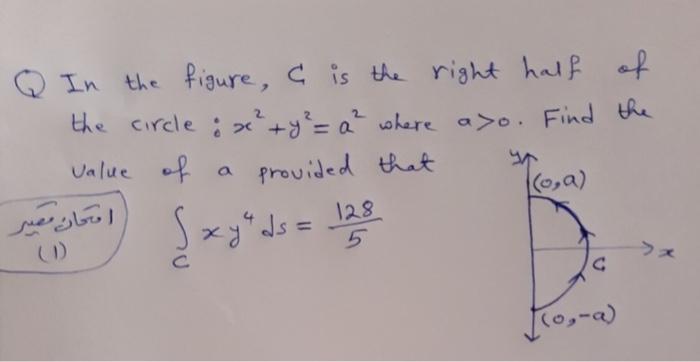 Q In the figure, C is the right half of
the circle : x² + y² = a² where a>0. Find the
value of a provided that
∫_C x y⁴ ds = 128/5
امتحان قصير
(1)
y
(0,a)
x
C
(0,-a)